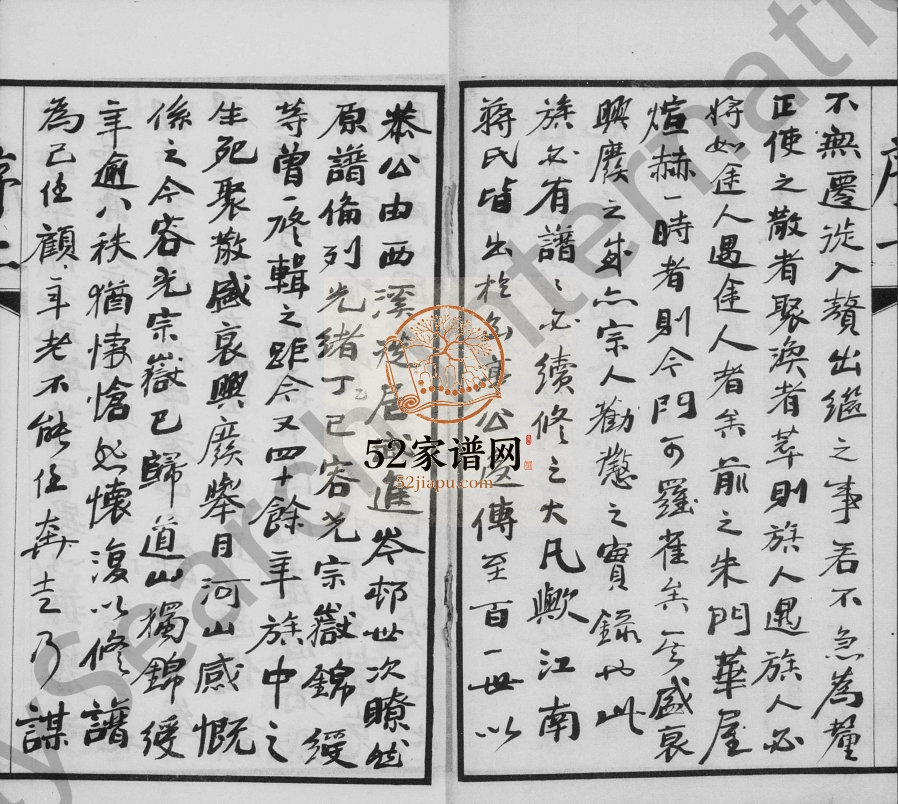 不無遷徙入贅出繼之事若不急為釐
正使之散者聚渙者萃則族人遇族人必
將如途人遇途人者矣前之朱門華屋
煊赫一時者則今門可羅雀矣其盛衰
興廢之感亦宗人勸懲之實錄也此
族必有譜譜必續修之大凡歟江南
蔣氏皆出於 公 傳至百一世以
恭公由西溪 居 進岺邨世次瞭然
原譜倫列光緒丁巳容光宗嶽錦綬
等曾一修輯之距今又四十餘年族中之
生死聚散盛衰興廢舉目河山感慨
係之今容光宗嶽已歸道山獨錦綬
年逾八秩猶悽愴然懷復以修譜
為己任顧年老不能任奔走乃謀
序
52家谱网
52jiapu.com